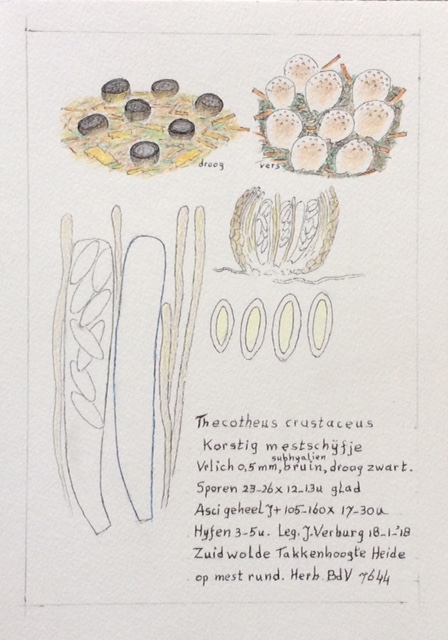 droog
vers
Thecotheus crustaceus
Korstig mestschijfje
subhyalien
Vrlich 0,5mm, bruin, droog zwart.
Sporen 23-26 x 12-13u glad
Asci geheel J+ 105-160 x 17-30u
Hyfen 3-5u. Leg. J. Verburg 18-1-'18
Zuidwolde Takkenhoogte Heide
op mest rund. Herb. BdV 7644